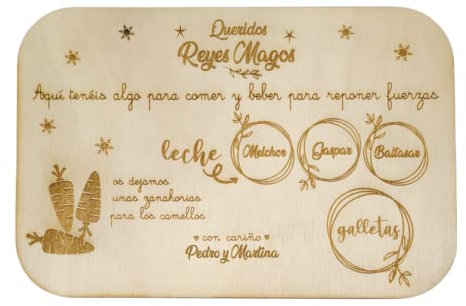 Queridos
Reyes Magos
Aquí tenéis algo para comer y beber para reponer fuerzas
leche
Melchor
Gaspar
Baltasar
os dejamos
unas zanahorias
para los camellos
galletas
con cariño
Pedro y Martina